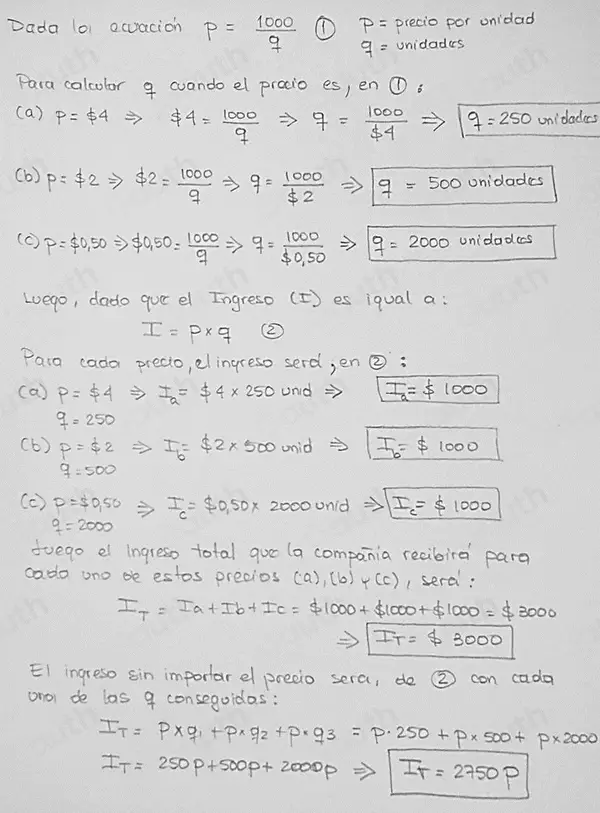 Dada la ecuación p = 1000/q ① p = precio por unidad
q = unidades
Para calcular q cuando el precio es, en ① :
(a) p = $4 ⇒ $4 = 1000/q ⇒ q = 1000/$4 ⇒ q = 250 unidades
(b) p = $2 ⇒ $2 = 1000/q ⇒ q = 1000/$2 ⇒ q = 500 unidades
(c) p = $0,50 ⇒ $0,50 = 1000/q ⇒ q = 1000/$0,50 ⇒ q = 2000 unidades
Luego, dado que el Ingreso (I) es igual a:
I = p x q ②
Para cada precio, el ingreso será, en ② :
(a) p = $4 ⇒ Ia = $4 x 250 unid ⇒ Ia = $ 1000
q = 250
(b) p = $2 ⇒ Ib = $2 x 500 unid ⇒ Ib = $ 1000
q = 500
(c) p = $0,50 ⇒ Ic = $0,50 x 2000 unid ⇒ Ic = $ 1000
q = 2000
Luego el Ingreso total que la compañia recibirá para
cada uno de estos precios (a), (b) y (c), será:
IT = Ia + Ib + Ic = $1000 + $1000 + $1000 = $ 3000
⇒ IT = $ 3000
El ingreso sin importar el precio sera, de ② con cada
una de las q conseguidas:
IT = p x q1 + p x q2 + p x q3 = p · 250 + p x 500 + p x 2000
IT = 250p + 500p + 2000p ⇒ IT = 2750 p